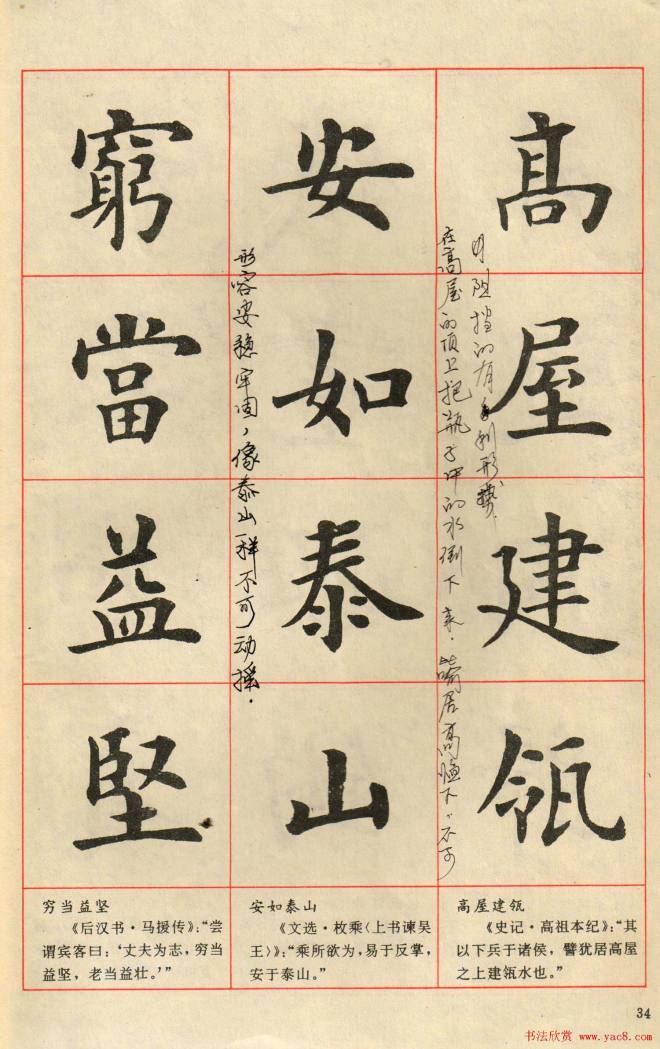 高屋建瓴
在高屋的顶上把瓶子中的水倒下来.喻居高临下,不可
阻挡的有利形势.
安如泰山
形容安稳牢固,像泰山一样不可动摇.
窮當益堅
高屋建瓴
《史记·高祖本纪》:“其
以下兵于诸侯,譬犹居高屋
之上建瓴水也。”
安如泰山
《文选·枚乘〈上书谏吴
王〉》:“乘所欲为,易于反掌,
安于泰山。”
穷当益坚
《后汉书·马援传》:“尝
谓宾客曰:‘丈夫为志,穷当
益坚,老当益壮。’”
34
书法欣赏 www.yac8.com